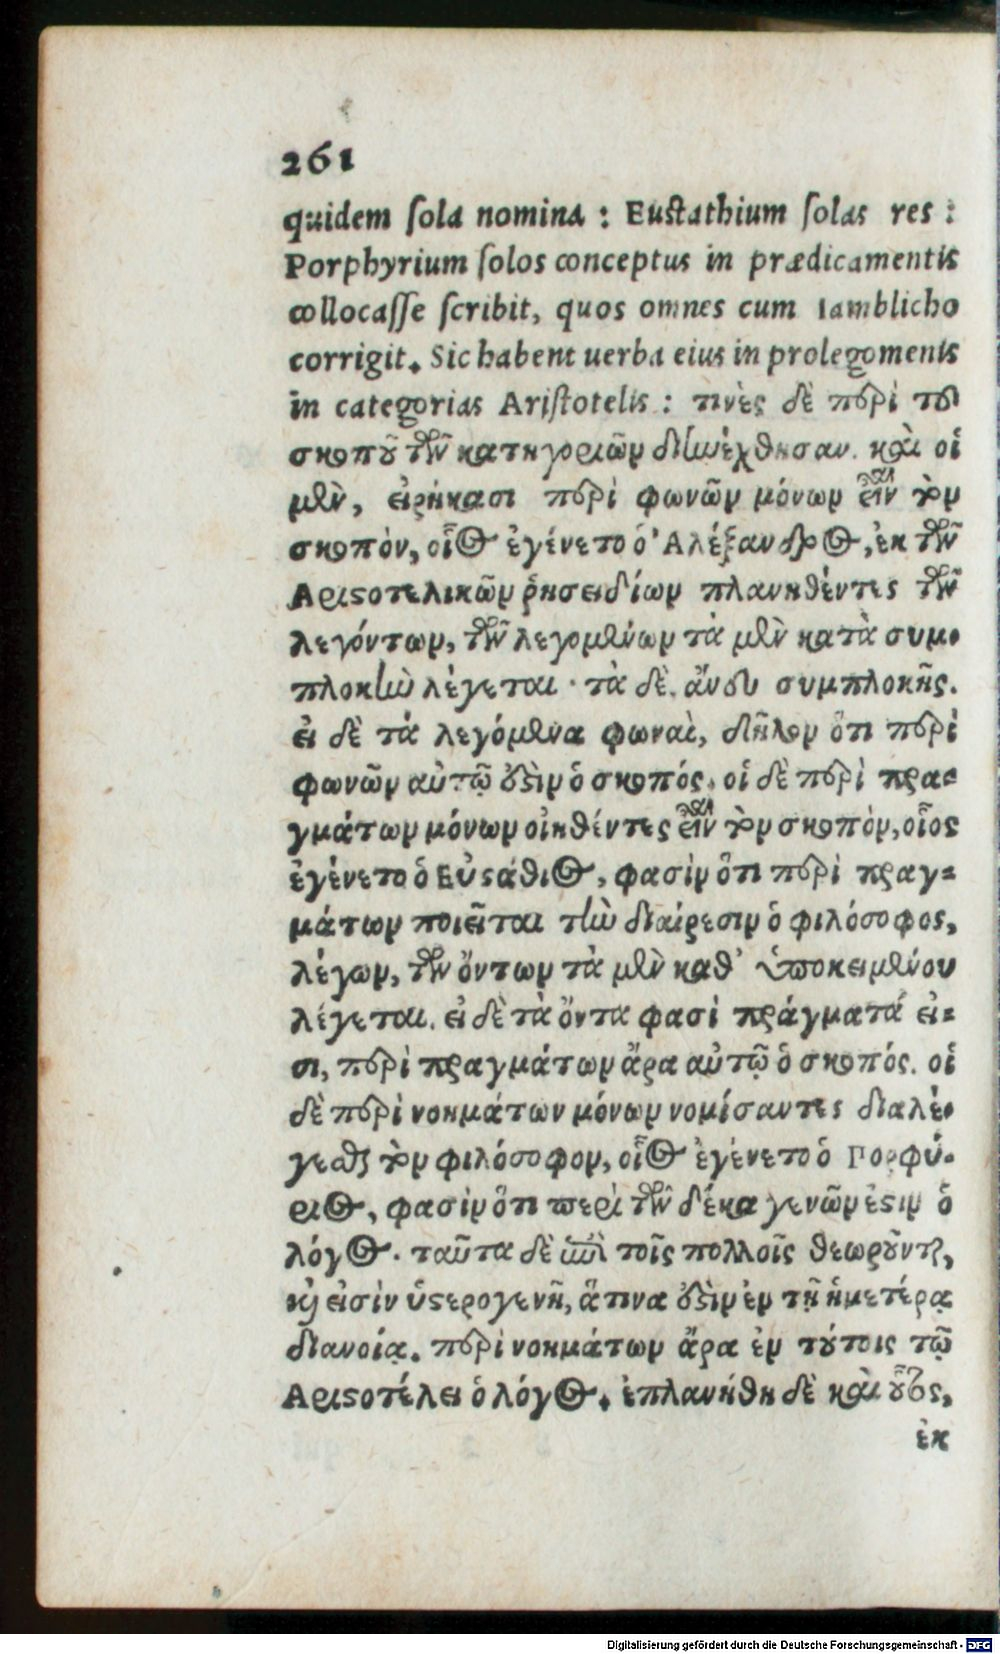 261
quidem ſola nomina : Euſtathium ſolas res :
Porphyrium ſolos conceptus in prædicamentis
collocaſſe ſcribit, quos omnes cum Iamblicho
corrigit. Sic habent uerba eius in prolegomenis
in categorias Ariſtotelis : τινὲς δὲ περὶ τοῦ
σκοποῦ τῶν κατηγοριῶν διηνέχθησαν. καὶ οἱ
μὲν, εἰρήκασι περὶ φωνῶν μόνων εἶναι τὸν
σκοπὸν, οἷος ἐγένετο ὁ Ἀλέξανδρος, ἐκ τῶν
Αριϛοτελικῶν ῥησειδίων πλανηθέντες τῶν
λεγόντων, τῶν λεγομένων τὰ μὲν κατὰ συμ-
πλοκὴν λέγεται · τὰ δὲ. ἄνευ συμπλοκῆς.
εἰ δὲ τὰ λεγόμενα φωναὶ, δῆλον ὅτι περὶ
φωνῶν αὐτῷ ἐϛὶν ὁ σκοπός. οἱ δὲ περὶ πρα-
γμάτων μόνων οἰηθέντες εἶναι τὸν σκοπὸν, οἷος
ἐγένετο ὁ Εὐϛάθιος, φασὶν ὅτι περὶ πραγ-
μάτων ποιεῖται τὴν διαίρεσιν ὁ φιλόσοφος,
λέγων, τῶν ὄντων τὰ μὲν καθ’ ὑποκειμένου
λέγεται. εἰ δὲ τὰ ὄντα φασὶ πράγματά εἰ-
σι, περὶ πραγμάτων ἄρα αὐτῷ ὁ σκοπός. οἱ
δὲ περὶ νοημάτων μόνων νομίσαντες διαλέ-
γεσθαι τὸν φιλόσοφον, οἷος ἐγένετο ὁ Πορφύ-
ριος, φασὶν ὅτι περὶ τῶν δέκα γενῶν ἐϛιν ὁ
λόγος. ταῦτα δὲ ἐπὶ τοῖς πολλοῖς θεωροῦνται,
καὶ εἰσὶν ὑϛερογενῆ, ἅτινα ἐϛὶν ἐν τῇ ἡμετέρᾳ
διανοίᾳ. περὶ νοημάτων ἄρα ἐν τούτοις τῷ
Αριϛοτέλει ὁ λόγος. ἐπλανήθη δὲ καὶ οὗτος,
ἐκ
Digitalisierung gefördert durch die Deutsche Forschungsgemeinschaft - DFG